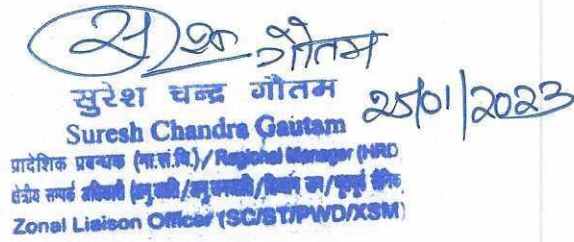 सु च गौतम
सुरेश चन्द्र गौतम
25/01/2023
Suresh Chandra Gautam
प्रादेशिक प्रबन्धक (मा.सं.वि.)/Regional Manager (HRD
क्षेत्रीय सम्पर्क अधिकारी (अनु जाति/अनु जनजाति/विकलांग जन/भूतपूर्व सैनिक
Zonal Liaison Officer (SC/ST/PWD/XSM)